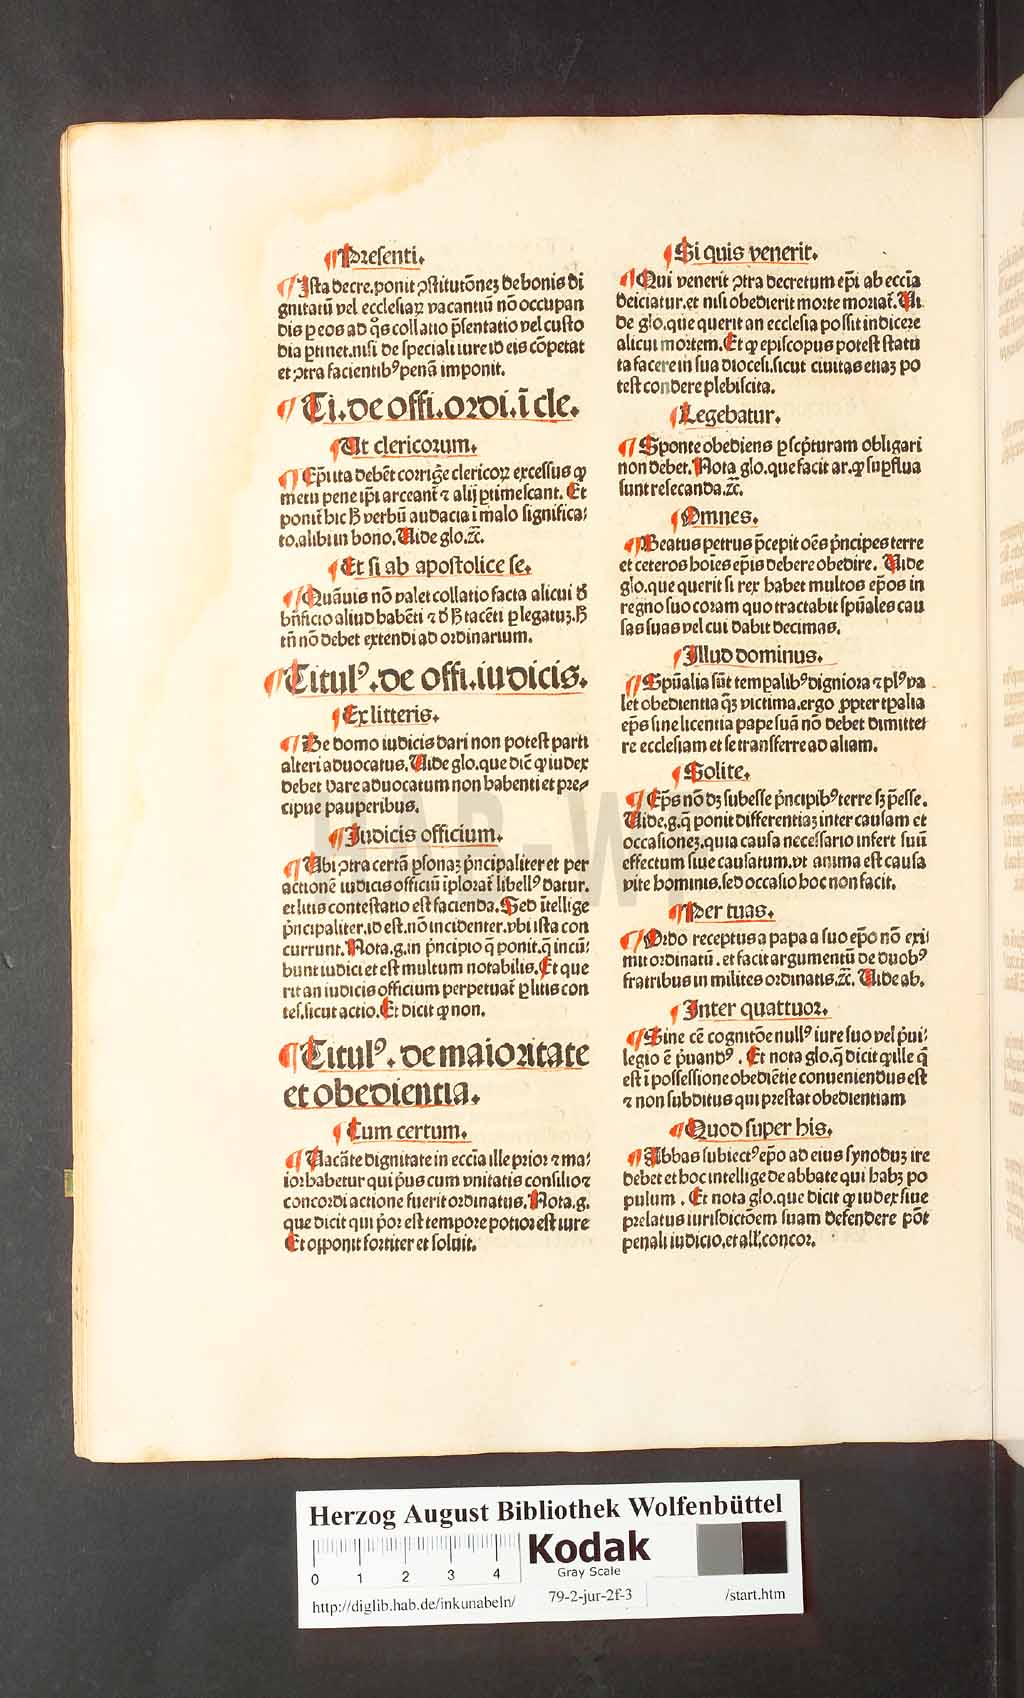 ¶ Presenti.
¶ Ista decre. ponit ꝯstitutōnez de bonis di
gnitatū vel ecclesiaꝝ vacantiū nō occupan
dis ꝑ eos ad q̊s collatio p̄sentatio vel custo
dia ꝑtinet. nisi de speciali iure id eis cōpetat
et ꝯtra facientibꝰ penā imponit.
¶ Ti. de offi. ordi. ī cle.
¶ Ut clericorum.
¶ Ep̄i ita debēt corrigēe clericoꝝ excessus ꝙ
metu pene ip̄i arceant̄ ⁊ alij ꝑtimescant. Et
ponit̄ hic ħ verbū audacia ī malo significa⸗
to. alibi in bono. Vide glo. ⁊c̄.
¶ Et si ab apostolice se.
¶ Quāuis nō valet collatio facta alicui đ
bn̄ficio aliud habēti ⁊ đ ħ tacēti ꝑ legatuꝫ. ħ
tn̄ nō debet extendi ad ordinarium.
¶ Titulꝰ. de offi. iudicis.
¶ Ex litteris.
¶ De domo iudicis dari non potest parti
alteri aduocatus. Vide glo. que dic̄ ꝙ iudex
debet dare aduocatum non habenti et pre⸗
cipue pauperibus.
¶ Iudicis officium.
¶ Ubi ꝯtra certā ꝑsonaꝫ p̄ncipaliter et per
actionē iudicis officiū īplorat̄ libellꝰ datur.
et litis contestatio est facienda. Sed ītellige
p̄ncipaliter. id est. nō incidenter. vbi ista con
currunt. Nota. g. in p̄ncipio q̄ ponit. q̄ incū⸗
bunt iudici et est multum notabilis. Et que
rit an iudicis officium perpetuat̄ ꝑ litis con
tes. sicut actio. Et dicit ꝙ non.
¶ Titulꝰ. de maioritate
et obedientia.
¶ Cum certum.
¶ Vacāte dignitate in ecc̄ia ille prior ⁊ ma⸗
ior habetur qui p̄us cum vnitatis consilio ⁊
concordi actione fuerit ordinatus. Nota. g.
que dicit qui p̄or est tempore potior est iure
Et opponit fortiter et soluit.
¶ Si quis venerit.
¶ Qui venerit ꝯtra decretum ep̄i ab ecc̄ia
deiciatur. et nisi obedierit morte moriat̄. Vi
de glo. que querit an ecclesia possit indicere
alicui mortem. Et ꝙ episcopus potest statu
ta facere in sua diocesi. sicut ciuitas etiaꝫ po
test condere plebiscita.
¶ Legebatur.
¶ Sponte obediens ꝑ scp̄turam obligari
non debet. Nota glo. que facit ar. ꝙ suꝑflua
sunt resecanda. ⁊c̄.
¶ Omnes.
¶ Beatus petrus p̄cepit oēs p̄ncipes terre
et ceteros hoīes ep̄is debere obedire. Vide
glo. que querit si rex habet multos ep̄os in
regno suo coram quo tractabit spūales cau
sas suas vel cui dabit decimas.
¶ Illud dominus.
¶ Spūalia sūt tempalibꝰ digniora ⁊ plꝰ va
let obedientia q̄ꝫ victima. ergo ꝓpter tꝑalia
ep̄s sine licentia pape suā nō debet dimitte
re ecclesiam et se transferre ad aliam.
¶ Solite.
¶ Ep̄s nō dꝫ subesse p̄ncipibꝰ terre sꝫ p̄esse.
Vide. g. q̄ ponit differentiaꝫ inter causam et
occasionez. quia causa necessario infert suū
effectum siue causatum. vt anima est causa
vite hominis. sed occasio hoc non facit.
¶ Per tuas.
¶ Ordo receptus a papa a suo ep̄o nō exi⸗
mit ordinatū. et facit argumentū de duobꝰ
fratribus in milites ordinatis. ⁊c̄. Vide ab.
¶ Inter quattuor.
¶ Sine cē cognitōe nullꝰ iure suo vel p̄ui⸗
legio ē p̄uandꝰ. Et nota glo. q̄ dicit ꝙ ille q̄
est ī possessione obediētie conueniendus est
⁊ non subditus qui prestat obedientiam
¶ Quod super his.
¶ Abbas subiectꝰ ep̄o ad eius synoduꝫ ire
debet et hoc intellige de abbate qui habꝫ po
pulum. Et nota glo. que dicit ꝙ iudex siue
prelatus iurisdictōem suam defendere pōt
penali iudicio. et all'. concor.
HAB-WF
Herzog August Bibliothek Wolfenbüttel
0 1 2 3 4
Kodak
Gray Scale
http://diglib.hab.de/inkunabeln/ 79-2-jur-2f-3 /start.htm